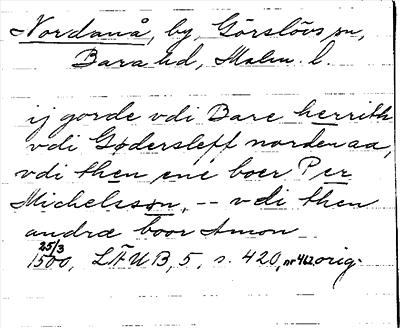 Nordanå, by, Görslövs sn,
Bara hd, Malm. l.
ij gorde vdi Bare herrith
vdi Gødersleff norden aa,
vdi then ene boer Per
Michelsson, -- vdi then
andræ boor Amon
25/3
1500, LÄUB, 5, s. 420, nr 462 orig.